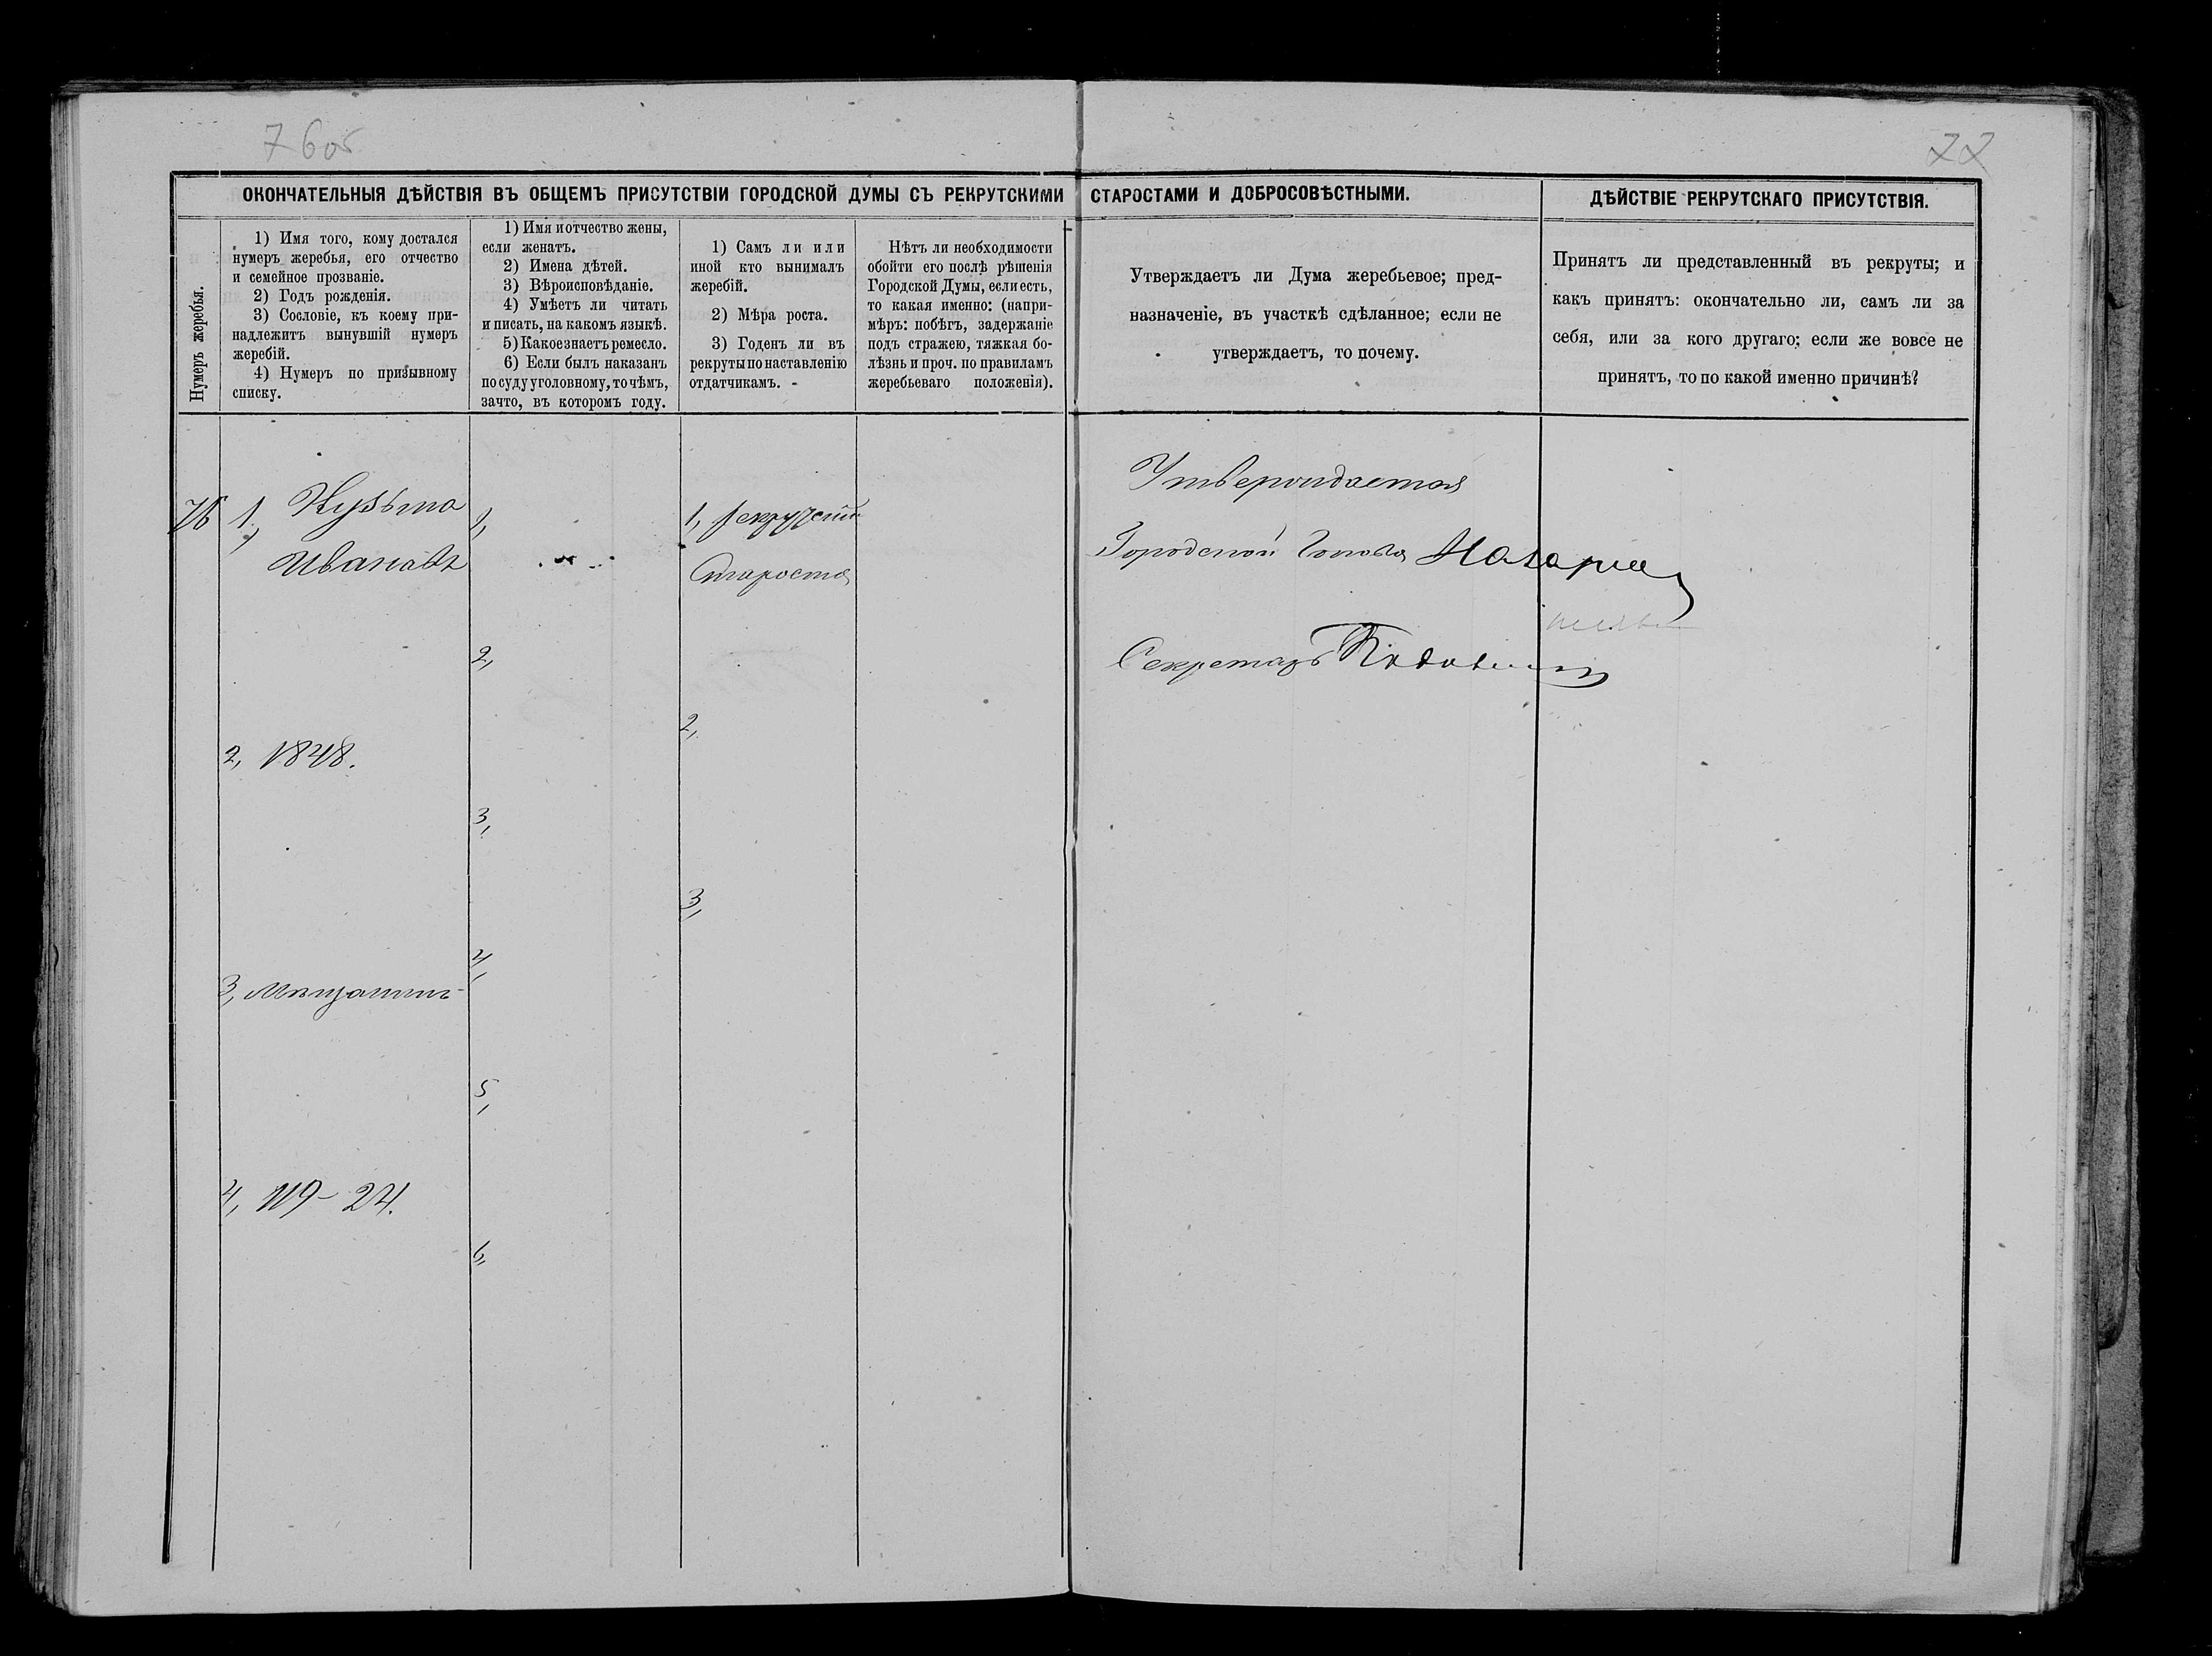 76об
77
ОКОНЧАТЕЛЬНЫЯ ДѢЙСТВІЯ ВЪ ОБЩЕМЪ ПРИСУТСТВІИ ГОРОДСКОЙ ДУМЫ СЪ РЕКРУТСКИМИ СТАРОСТАМИ И ДОБРОСОВѢСТНЫМИ.
ДѢЙСТВІЕ РЕКРУТСКАГО ПРИСУТСТВІЯ.
Нумеръ жеребья.
1) Имя того, кому достался
нумеръ жеребья, его отчество
и семейное прозваніе.
2) Годъ рожденія.
3) Сословіе, къ коему при-
надлежитъ вынувшій нумеръ
жеребій.
4) Нумеръ по призывному
списку.
1) Имя и отчество жены,
если женатъ.
2) Имена дѣтей.
3) Вѣроисповѣданіе.
4) Умѣетъ ли читать
и писать, на какомъ языкѣ.
5) Какое знаетъ ремесло.
6) Если былъ наказанъ
по суду уголовному, то чѣмъ,
за что, въ которомъ году.
1) Самъ ли или
иной кто вынималъ
жеребій.
2) Мѣра роста.
3) Годенъ ли въ
рекруты по наставленію
отдатчикамъ.
Нѣтъ ли необходимости
обойти его послѣ рѣшенія
Городской Думы, если есть,
то какая именно: (напри-
мѣръ: побѣгъ, задержаніе
подъ стражею, тяжкая бо-
лѣзнь и проч. по правиламъ
жеребьеваго положенія).
Утверждаетъ ли Дума жеребьевое; пред-
назначеніе, въ участкѣ сдѣланное; если не
утверждаетъ, то почему.
Принятъ ли представленный въ рекруты; и
какъ принятъ: окончательно ли, самъ ли за
себя, или за кого другаго; если же вовсе не
принятъ, то по какой именно причинѣ?
76
1, Кузьма
Ивановъ
2, 1848.
3, Мѣщанинъ
4, 119-24.
1,
2,
3,
4,
5,
6,
1, рекрутскій
Староста
2,
3,
Утверждается
Городской Голова
Секретарь